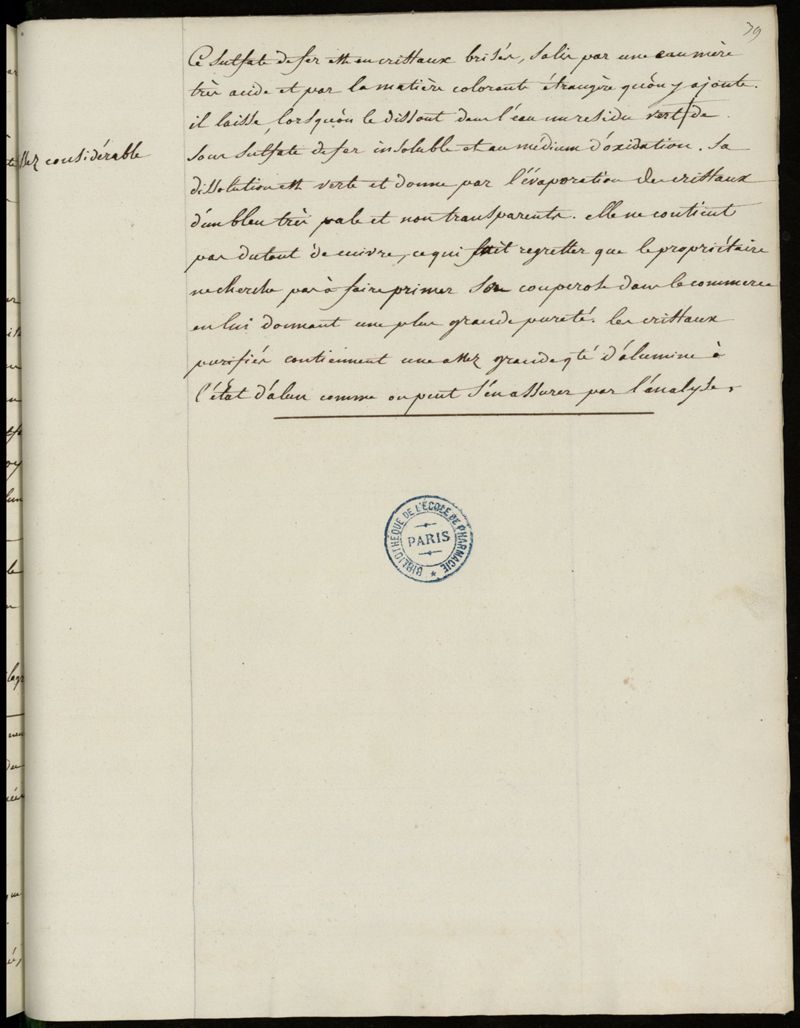 79
Ce sulfate de fer est en cristaux brisés, salis par une eau mère
très acide et par la matière colorante étrangère qu'on y ajoute.
il laisse, lorsqu'on le dissout dans l'eau un residu vert/de
assez considérable
sous sulfate de fer insoluble et au médium d'oxidation. Sa
dissolution est verte et donne par l'évaporation des cristaux
d'un bleu très pale et non transparents. elle ne contient
pas du tout de cuivre, ce qui fait regretter que le propriétaire
ne cherche pas à faire primer son couperose dans le commerce
en lui donnant une plus grande pureté. les cristaux
purifiés contiennent une assez grande qté d'alumine à
l'état d'alun comme on peut s'en assurer par l'analyse.
BIBLIOTHÈQUE DE L'ÉCOLE DE PHARMACIE
PARIS